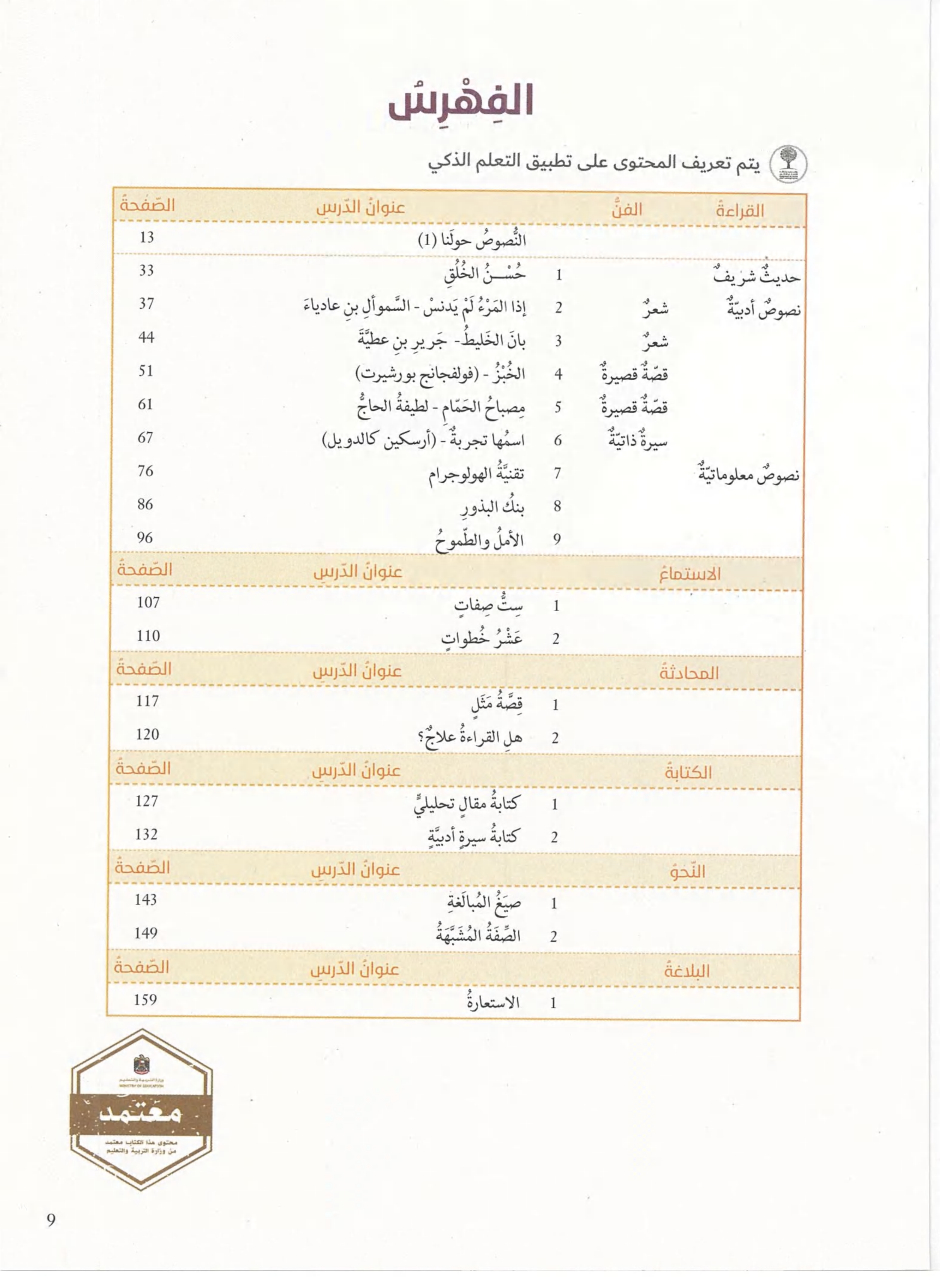 الفِهْرِسُ
يتم تعريف المحتوى على تطبيق التعلم الذكي
القراءةُ الفنُّ عنوانُ الدّرسِ الصّفحةُ
النُّصوصُ حولَنا (1) 13
حديثٌ شريفٌ 1 حُسْـنُ الخُلُقِ 33
نصوصٌ أدبيّةٌ شعرٌ 2 إذا المَرْءُ لَمْ يَدنسْ - السَّموألِ بنِ عادياءَ 37
شعرٌ 3 بانَ الخَليطُ- جَريرِ بنِ عطيَّةَ 44
قصّةٌ قصيرةٌ 4 الخُبْزُ - (فولفجانج بورشيرت) 51
قصّةٌ قصيرةٌ 5 مِصباحُ الحَمّامِ - لطيفةُ الحاجُّ 61
سيرةٌ ذاتيّةٌ 6 اسمُها تجربةٌ - (أرسكين كالدويل) 67
نصوصٌ معلوماتيّةٌ 7 تقنيَّةُ الهولوجرام 76
8 بنكُ البذورِ 86
9 الأملُ والطّموحُ 96
الاستماعُ عنوانُ الدّرسِ الصّفحةُ
1 سِتُّ صِفاتٍ 107
2 عَشْرُ خُطواتٍ 110
المحادثةُ عنوانُ الدّرسِ الصّفحةُ
1 قِصَّةُ مَثَلٍ 117
2 هلِ القراءةُ علاجٌ؟ 120
الكتابةُ عنوانُ الدّرسِ الصّفحةُ
1 كتابةُ مقالٍ تحليليٍّ 127
2 كتابةُ سيرةٍ أدبيَّةٍ 132
النّحوُ عنوانُ الدّرسِ الصّفحةُ
1 صيَغُ المُبالَغةِ 143
2 الصِّفَةُ المُشَبَّهَةُ 149
البلاغةُ عنوانُ الدّرسِ الصّفحةُ
1 الاستعارةُ 159
وزارة التربية والتعليم
MINISTRY OF EDUCATION
معتمد
محتوى هذا الكتاب معتمد
من وزارة التربية والتعليم
9